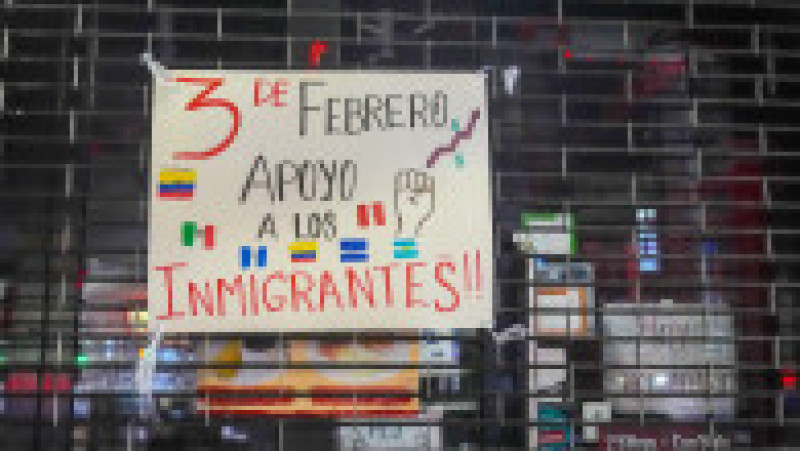 3 DE FEBRERO
APOYO
A LOS
INMIGRANTES!!